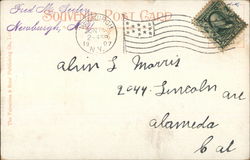 Souvenir Post Card
Fred M.
Newburgh, N.Y.
N.Y.
Alvin L Morris
2044 Lincoln ave
Alameda
Cal